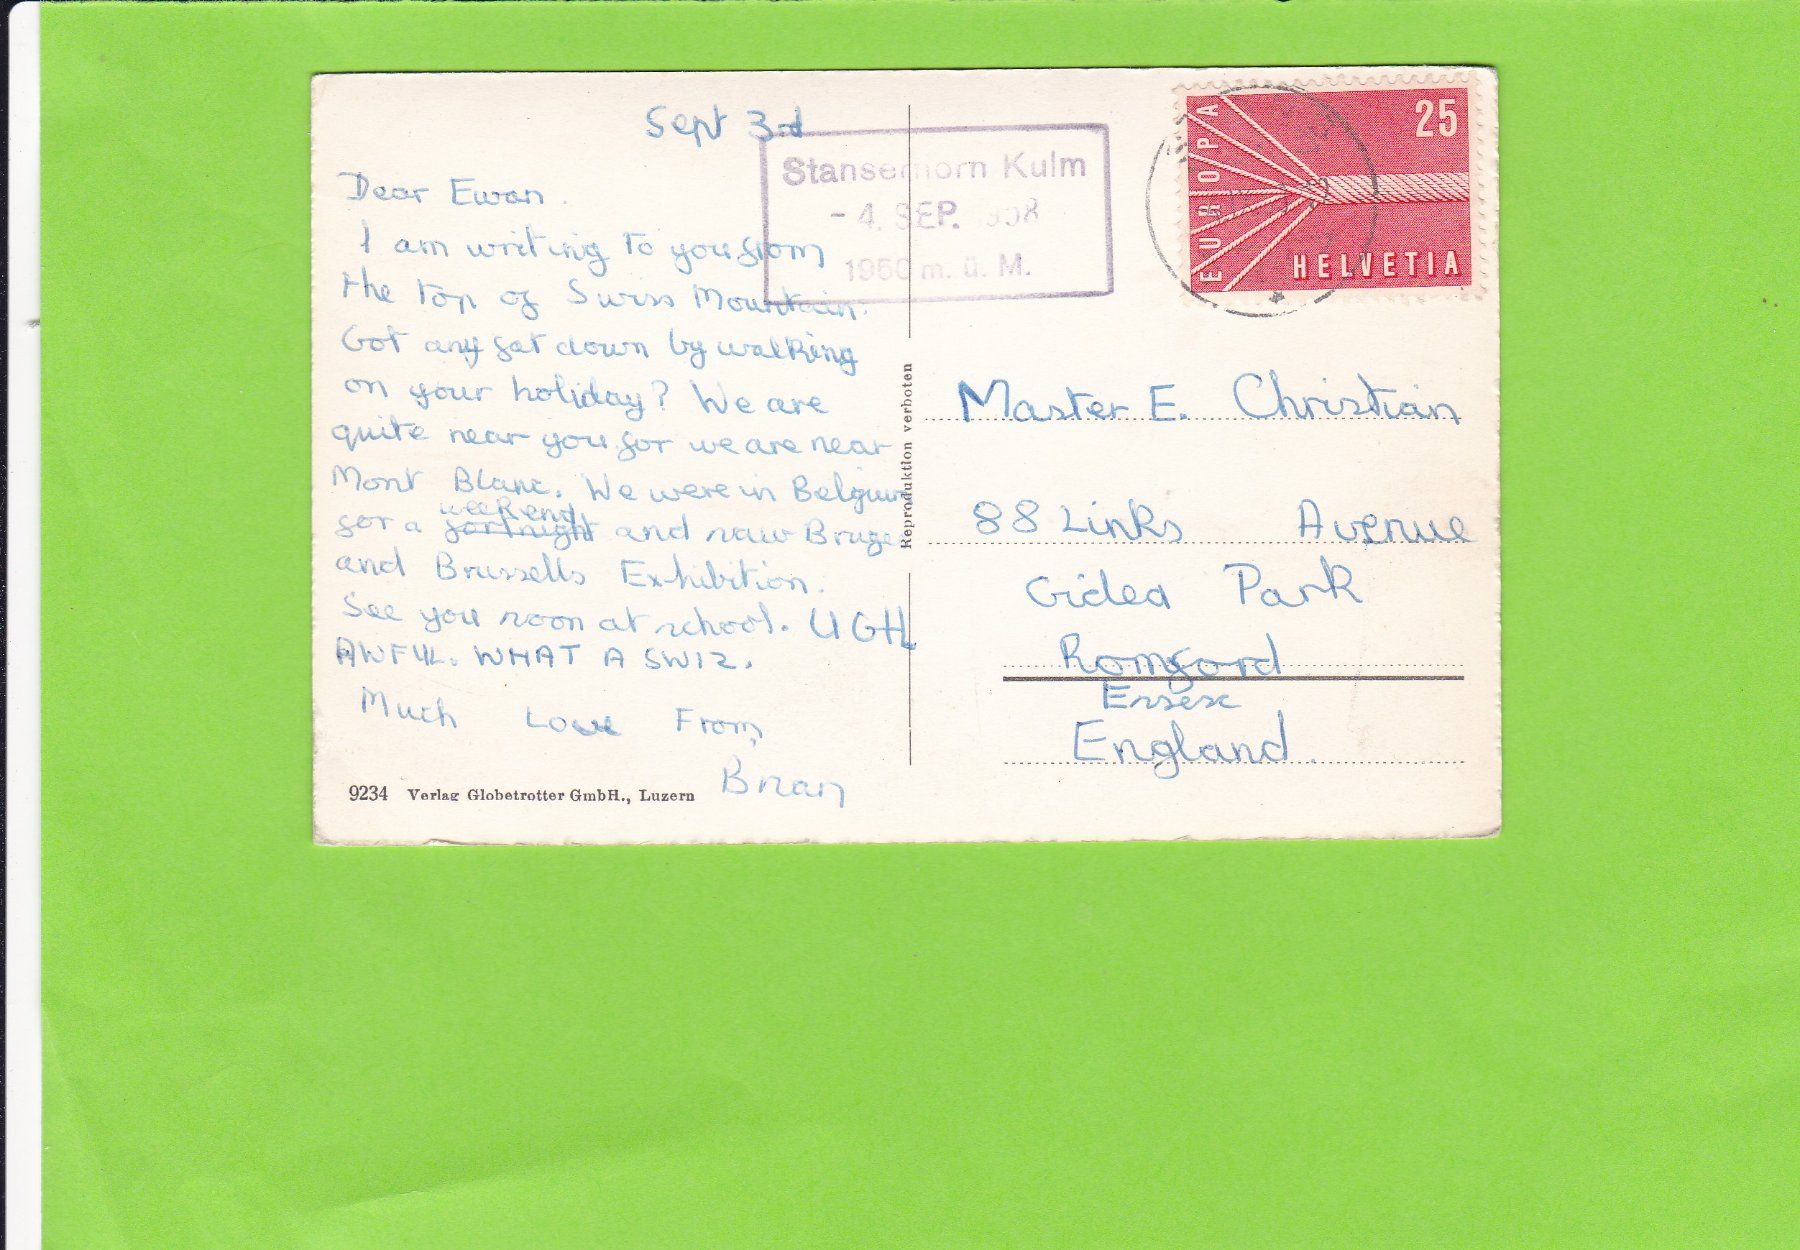 Sept 3rd
Stanserhorn Kulm
- 4. SEP. 1958
1950 m. ü. M.
Dear Ewan.
I am writing to you from
the top of Swiss Mountain.
Got any fat down by walking
on your holiday? We are
quite near you for we are near
Mont Blanc. We were in Belgium
weekend
for a fortnight and saw Bruge
and Brussells Exhibition.
See you soon at school. UGH
AWFUL. WHAT A SWIZ.
Much Love From
Brian
9234 Verlag Globetrotter GmbH., Luzern
Reproduktion verboten
EUROPA
25
HELVETIA
Master E. Christian
88 Links Avenue
Gidea Park
Romford
Essex
England.